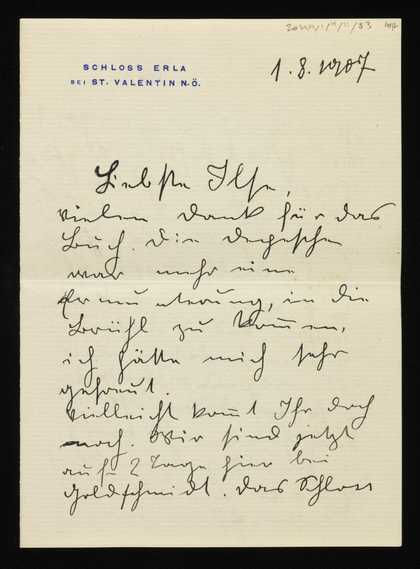 SCHLOSS ERLA
BEI ST. VALENTIN N.Ö.
1.8.1907
Liebste Ilse,
vielen Dank für das
Buch. Die Depesche
war mehr eine
Ermunterung, in die
Brühl zu kom̅en,
ich hätte mich sehr
gefreut.
Vielleicht kom̅t Ihr doch
noch. Wir sind jetzt
auf 2 Tage hier bei
Goldschmidt. Das Schloss